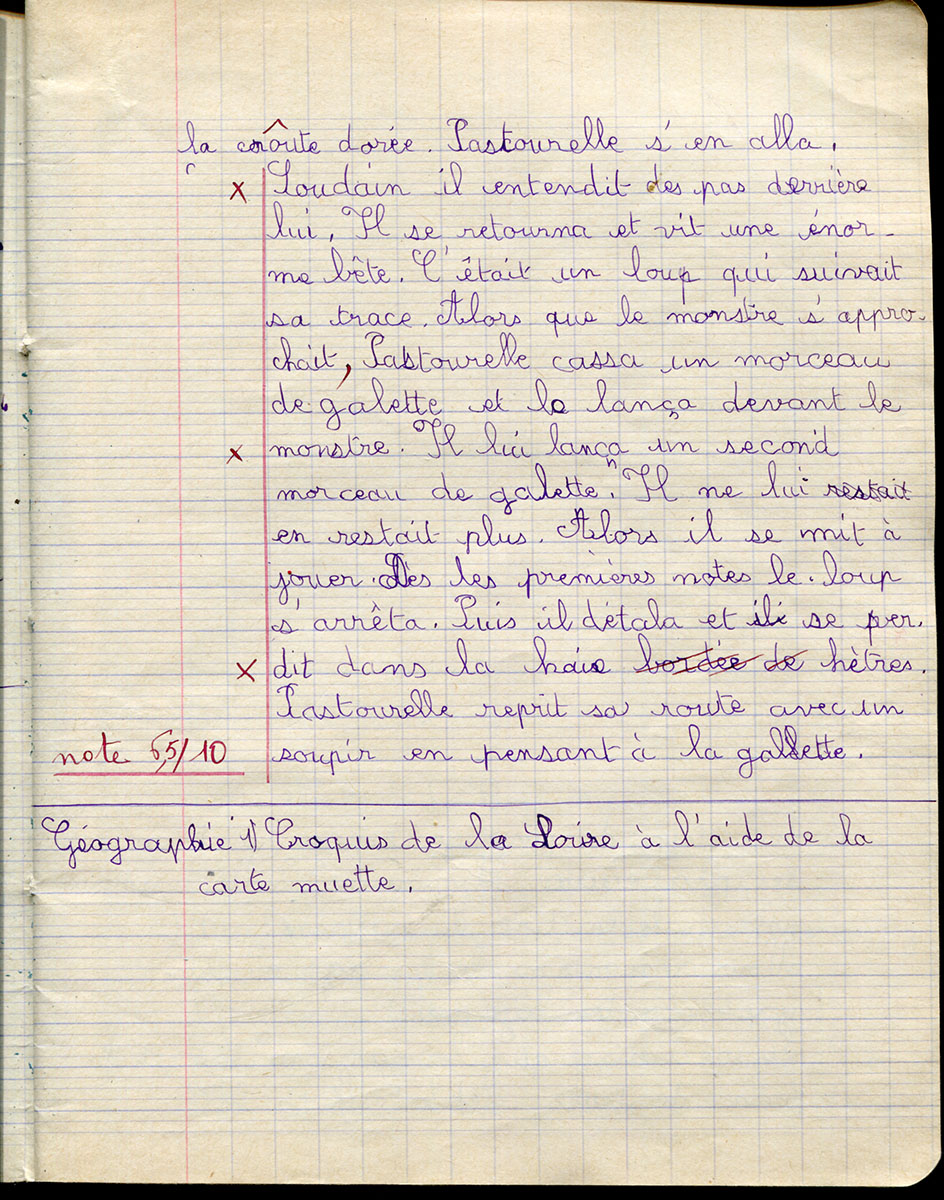 la croûte dorée. Pastourelle s'en alla.
x Soudain il entendit des pas derrière
lui. Il se retourna et vit une énor-
me bête. C'était un loup qui suivait
sa trace. Alors que le monstre s'appro-
chait, Pastourelle cassa un morceau
de galette et le lança devant le
x monstre. Il lui lança un second
morceau de galette. Il ne lui restait
n
en restait plus. Alors il se mit à
jouer. Dès les premières notes le loup
s'arrêta. Puis il détala et il se per-
x dit dans la haie bordée de hètres.
Pastourelle reprit sa route avec un
note 6,5/10 soupir en pensant à la galette.
Géographie 1) Croquis de la Loire à l'aide de la
carte muette.